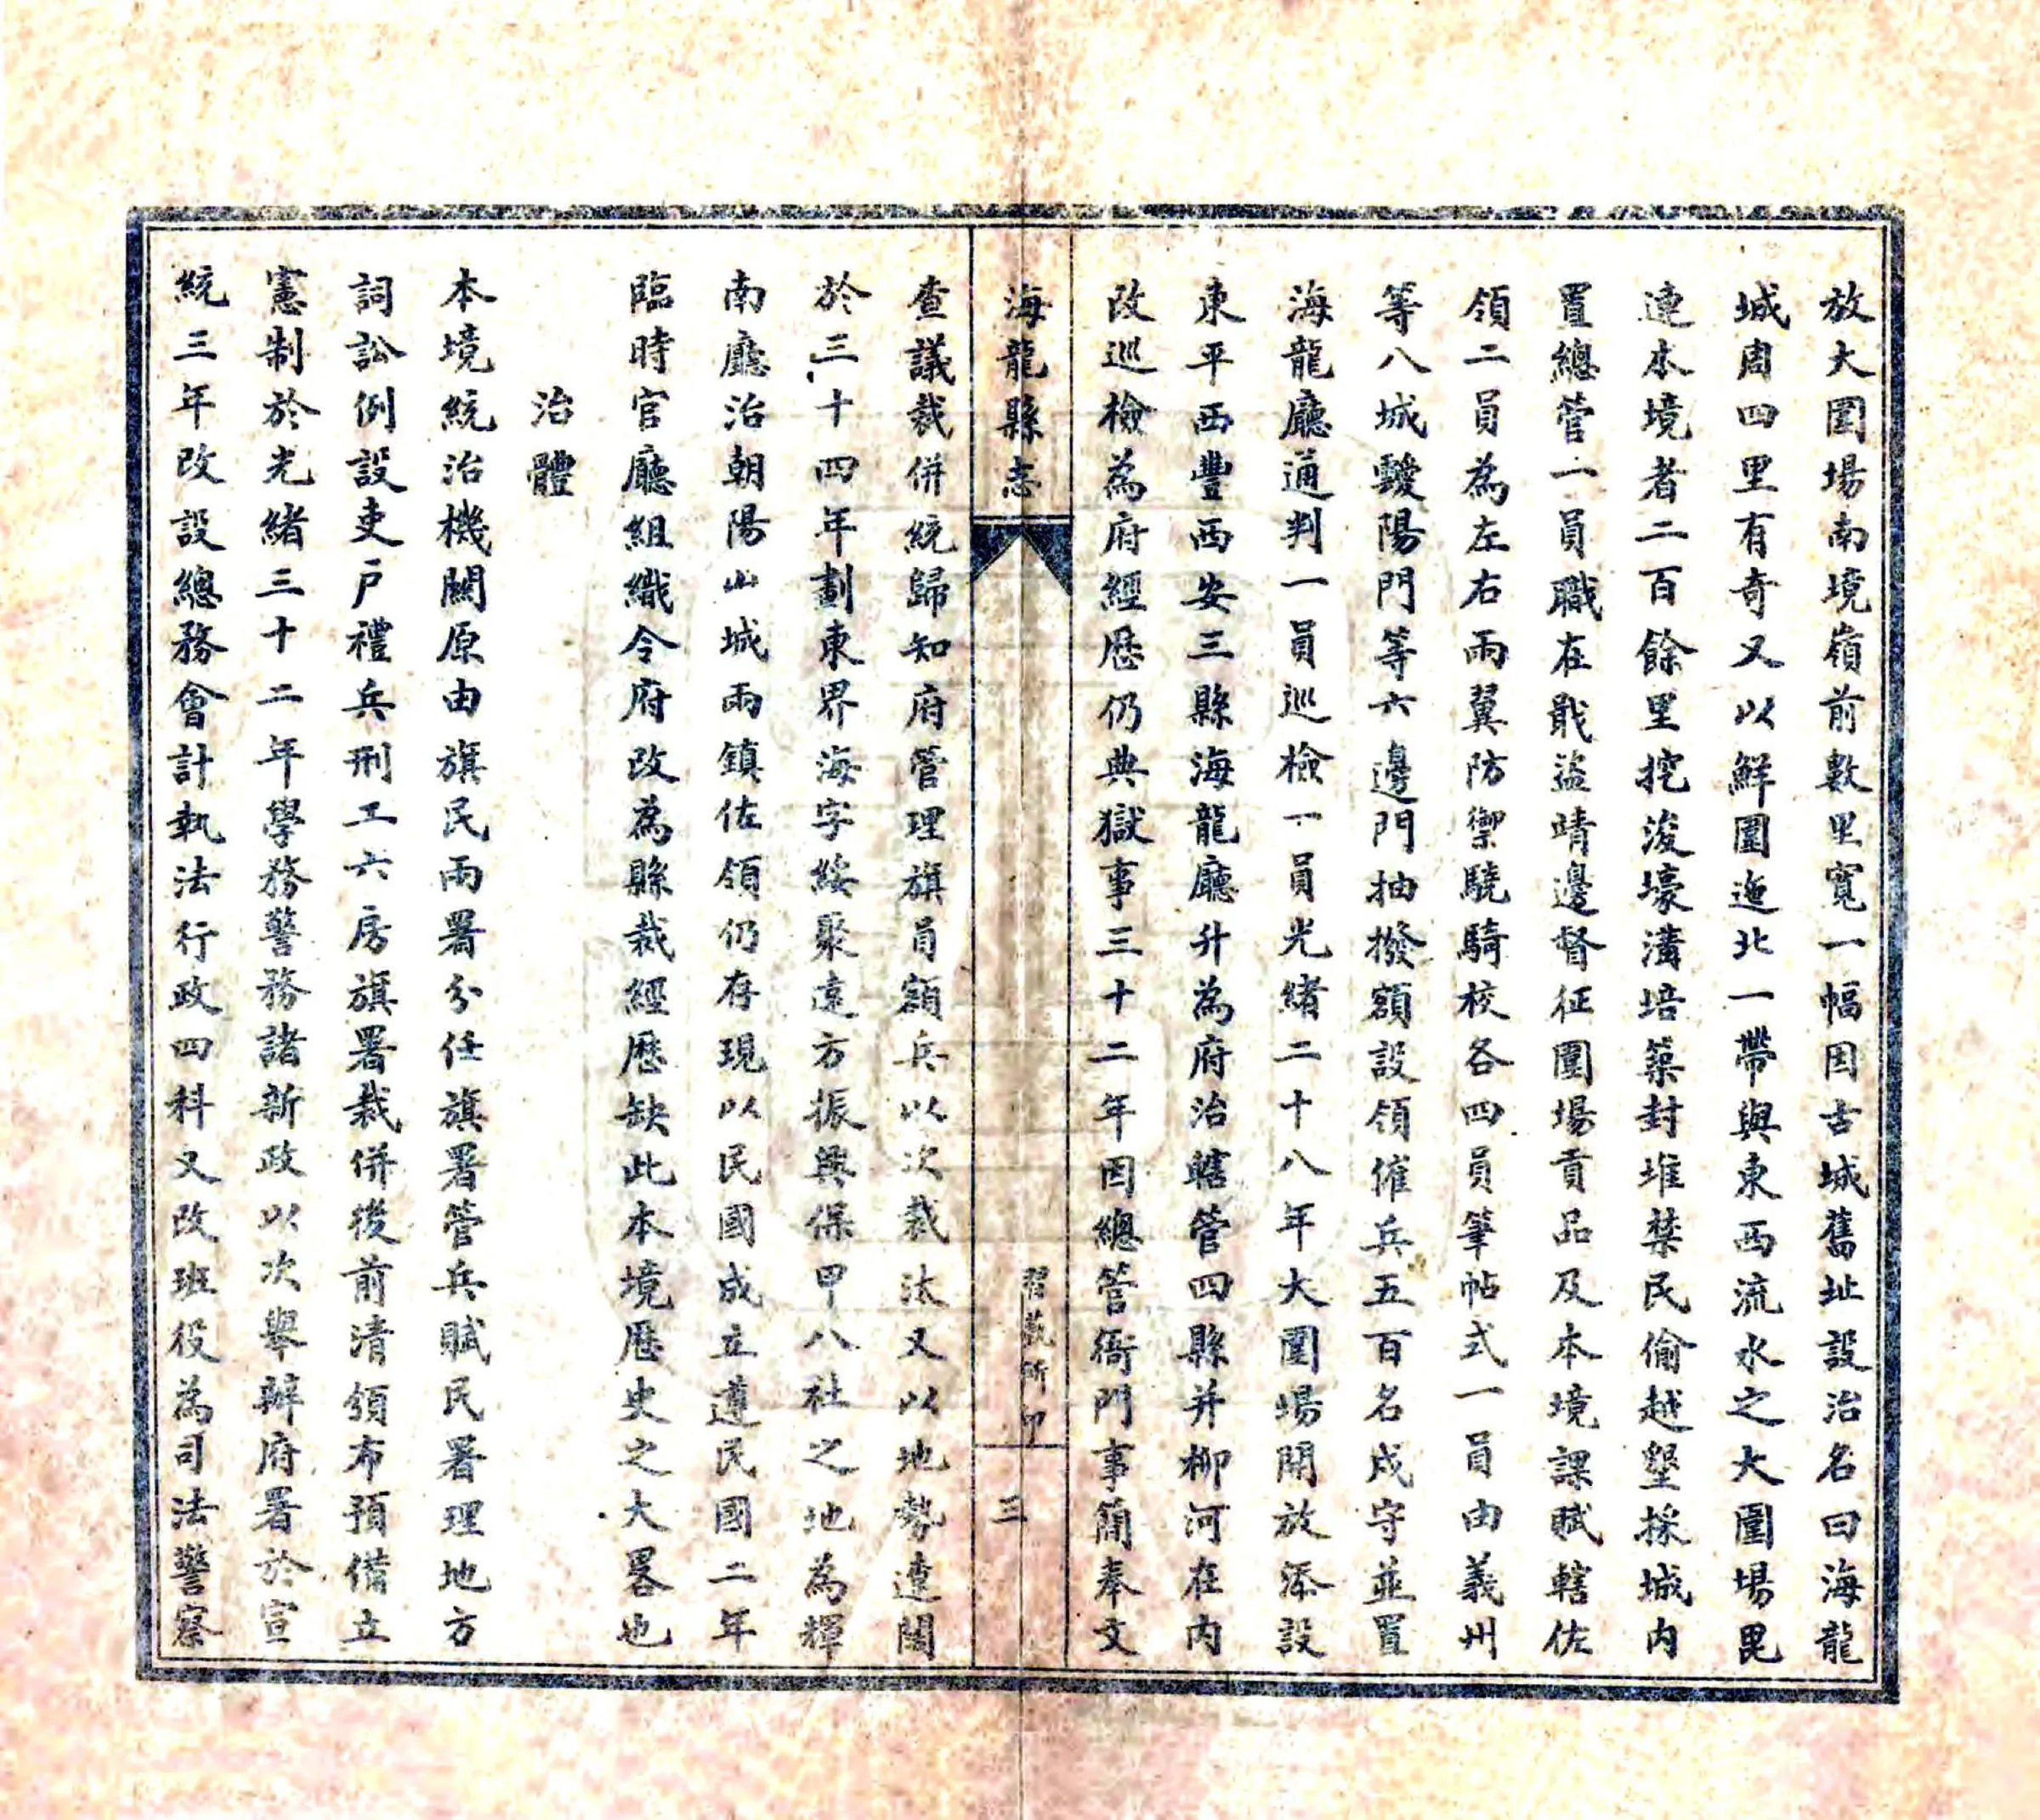 放大圍場南境嶺前數里寬一幅因古城舊址設治名曰海龍
城周四里有奇又以鮮圍迤北一帶與東西流水之大圍場毘
連本境者二百餘里挖浚壕溝培築封堆禁民偷越墾採城内
置總管一員職在戢盜靖邊督征圍場貢品及本境課賦轄佐
領二員為左右兩翼防禦驍騎校各四員筆帖式一員由義州
等八城靉陽門等六邊門抽撥額設領催兵五百名戍守並置
海龍廳通判一員巡檢一員光緒二十八年大圍場開放添設
東平西豐西安三縣海龍廳升為府治轄管四縣并柳河在内
改巡檢為府經歷仍典獄事三十二年因總管衙門事簡奉文
海龍縣志
習藝所印
三
查議裁併統歸知府管理旗員額兵以次裁汰又以地勢遼闊
於三十四年劃東界海字綏聚遠方振興保甲八社之地為輝
南廳治朝陽山城兩鎮佐領仍存現以民國成立遵民國二年
臨時官廳組織令府改為縣裁經歷缺此本境歷史之大畧也
治體
本境統治機關原由旗民兩署分任旗署管兵賦民署理地方
詞訟例設吏戶禮兵刑工六房旗署裁併後前清頒布預備立
憲制於光緒三十二年學務警務諸新政以次舉辦府署於宣
統三年改設總務會計執法行政四科又改班役為司法警察